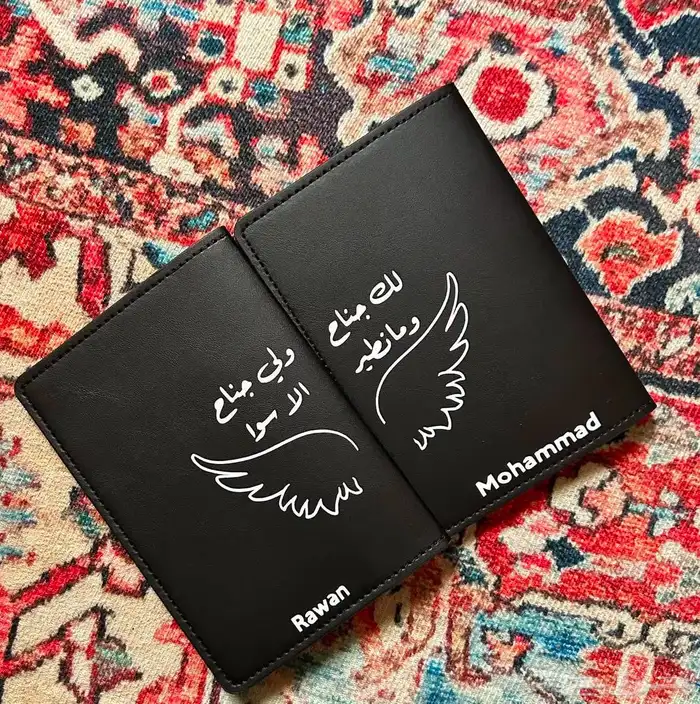 لك جناح
ومانطير
Mohammad
ولي جناح
الا سوا
Rawan